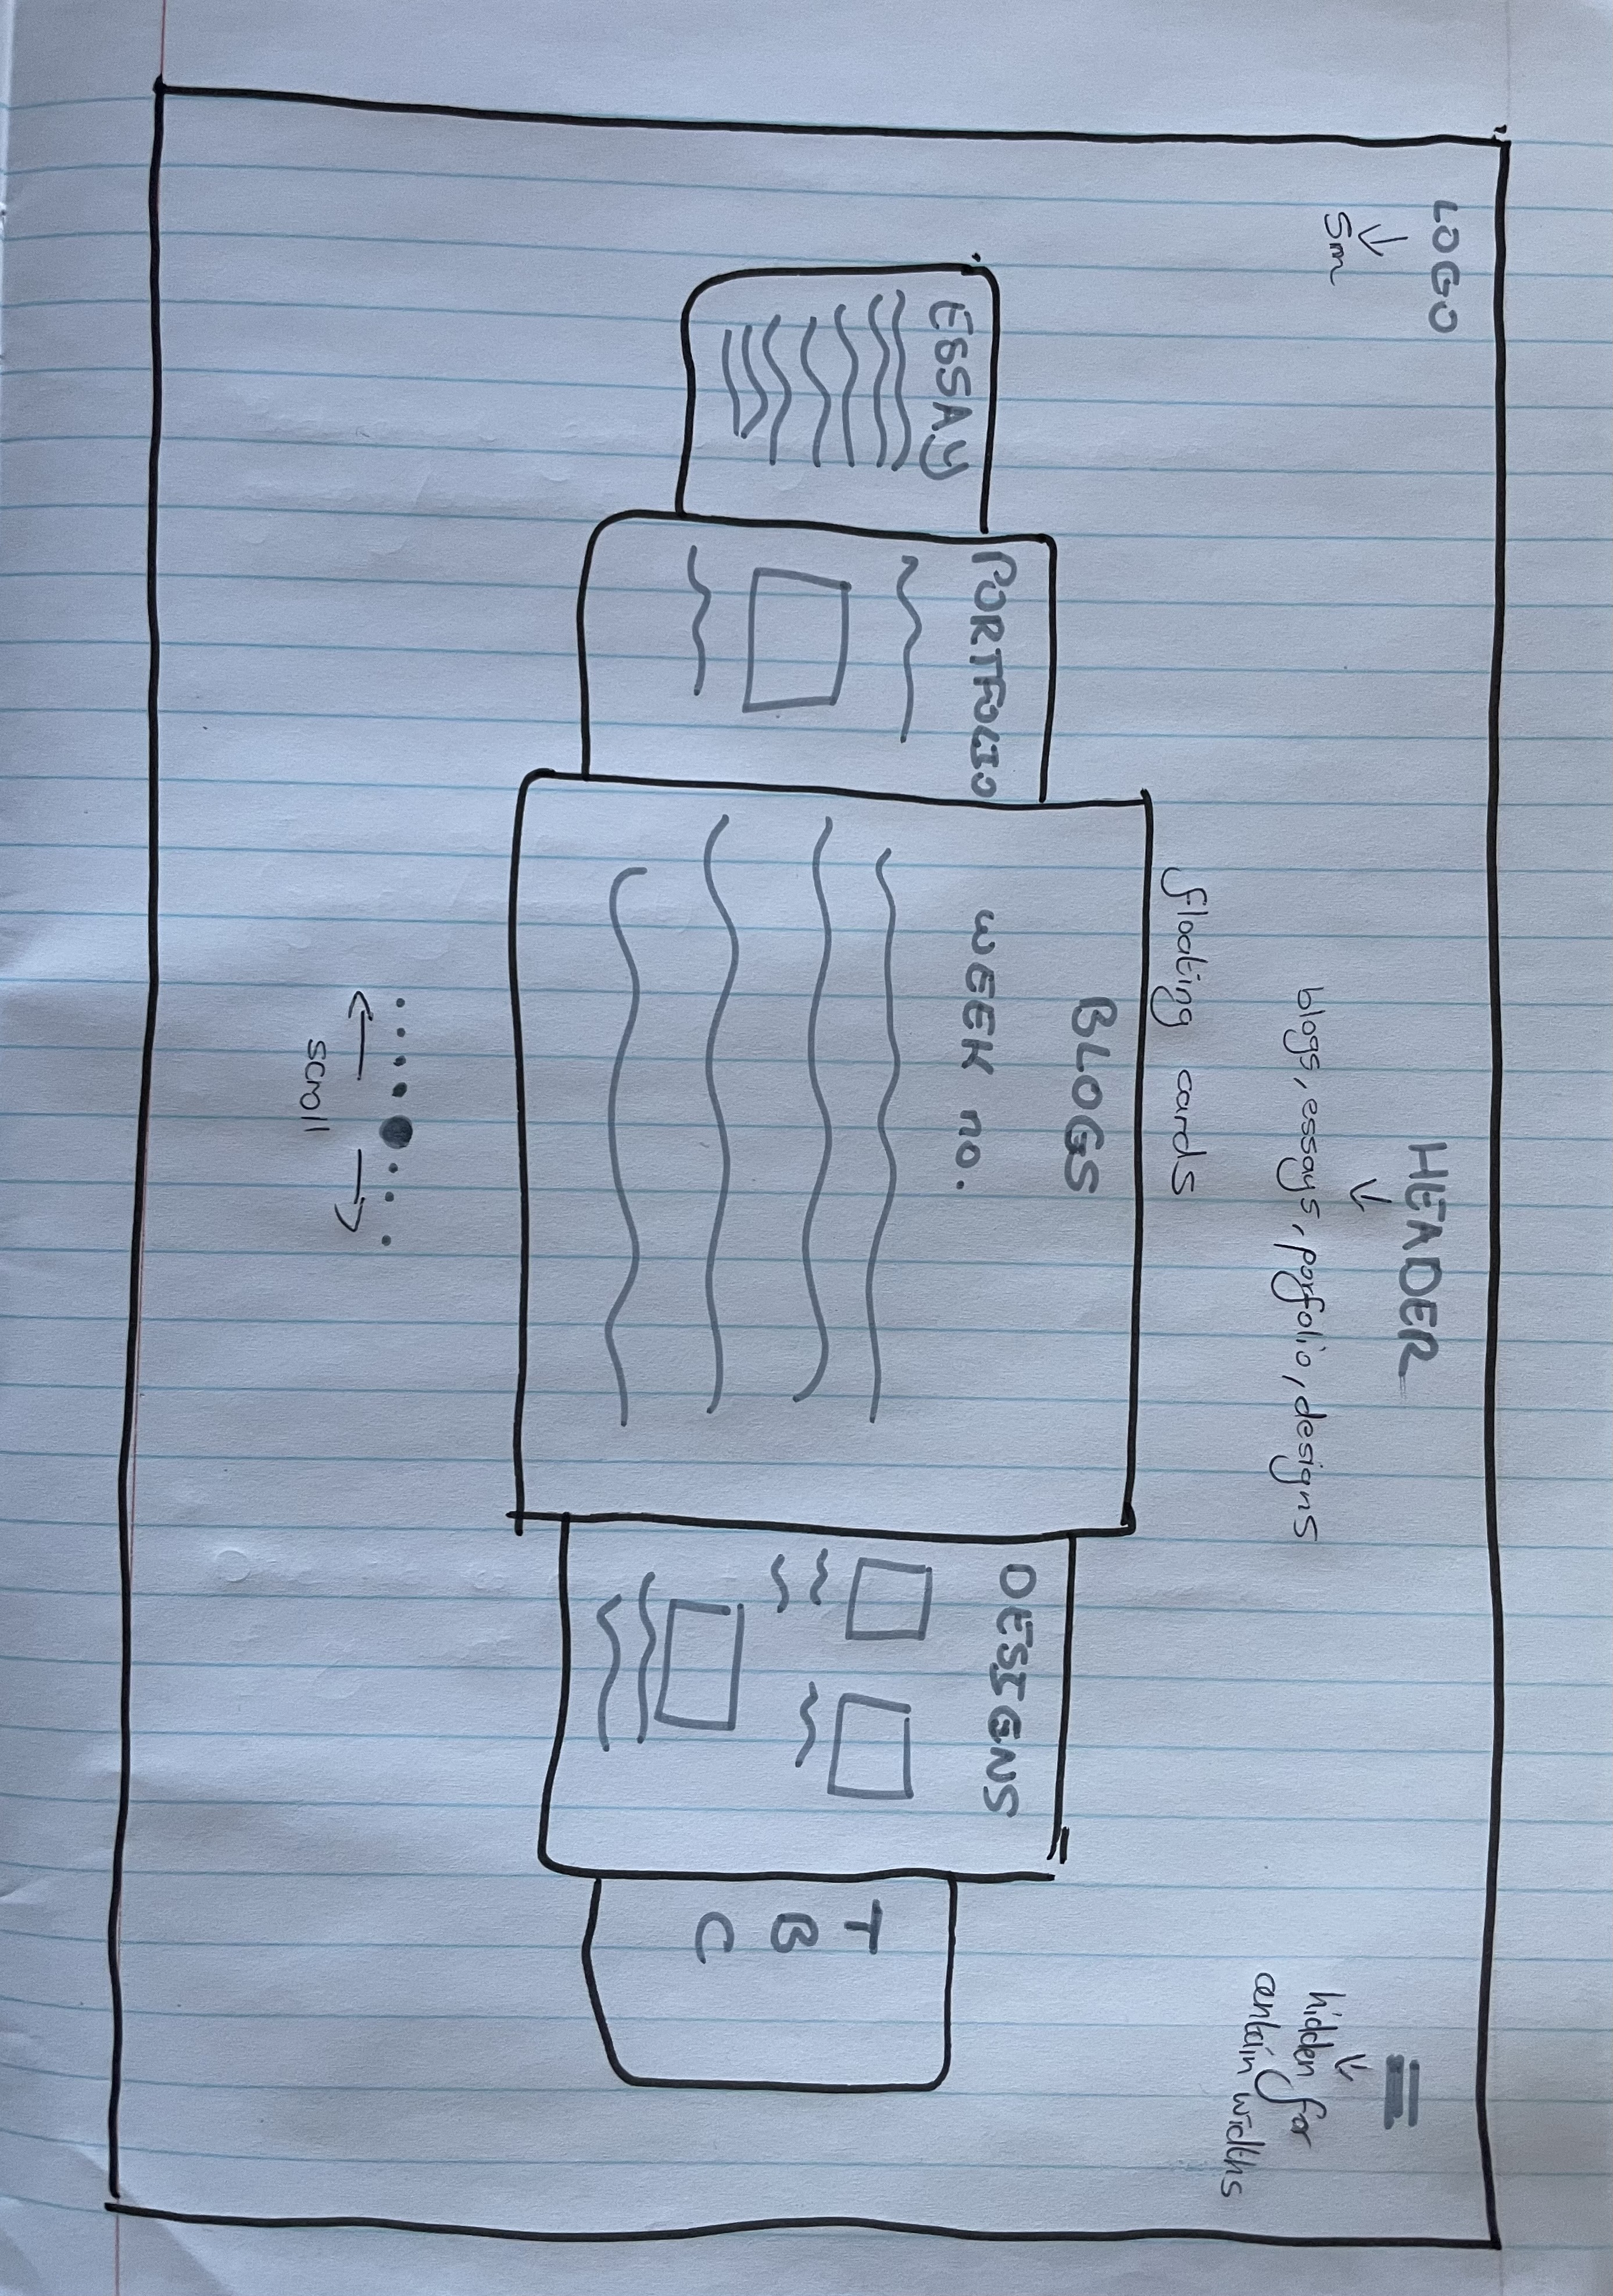 LOGO
↓
Sm
HEADER
↓
blogs, essays, porfolio, designs
hidden for
certain widths
floating cards
ESSAY
PORTFOLIO
BLOGS
WEEK no.
DESIGNS
T
B
C
← →
scroll